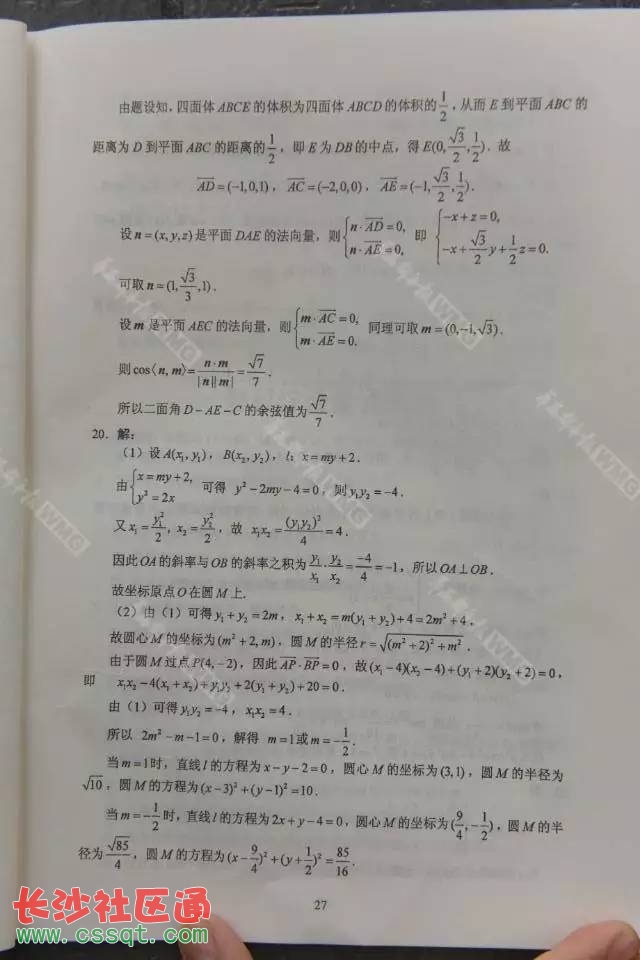 由题设知,四面体 ABCE 的体积为四面体 ABCD 的体积的 1/2 ,从而 E 到平面 ABC 的
距离为 D 到平面 ABC 的距离的 1/2 ,即 E 为 DB 的中点,得 E(0, √3/2, 1/2). 故
AD=(−1,0,1), AC=(−2,0,0), AE=(−1, √3/2, 1/2).
设 n=(x,y,z) 是平面 DAE 的法向量,则 {n·AD=0, n·AE=0, 即 {−x+z=0, −x+ √3/2 y+ 1/2 z=0.
可取 n=(1, √3/3, 1).
设 m 是平面 AEC 的法向量,则 {m·AC=0, m·AE=0. 同理可取 m=(0,−1,√3).
则 cos⟨n,m⟩= n·m/|n||m| = √7/7 .
所以二面角 D−AE−C 的余弦值为 √7/7 .
20. 解:
(1)设 A(x₁,y₁), B(x₂,y₂), l: x=my+2.
由 {x=my+2, y²=2x 可得 y²−2my−4=0,则 y₁y₂=−4.
又 x₁= y₁²/2, x₂= y₂²/2,故 x₁x₂= (y₁y₂)²/4 =4.
因此 OA 的斜率与 OB 的斜率之积为 y₁/x₁ · y₂/x₂ = −4/4 =−1,所以 OA⊥OB.
故坐标原点 O 在圆 M 上.
(2)由(1)可得 y₁+y₂=2m, x₁+x₂=m(y₁+y₂)+4=2m²+4.
故圆心 M 的坐标为 (m²+2,m),圆 M 的半径 r=√((m²+2)²+m²).
由于圆 M 过点 P(4,−2),因此 AP·BP=0,故 (x₁−4)(x₂−4)+(y₁+2)(y₂+2)=0,
即 x₁x₂−4(x₁+x₂)+y₁y₂+2(y₁+y₂)+20=0.
由(1)可得 y₁y₂=−4, x₁x₂=4.
所以 2m²−m−1=0,解得 m=1 或 m=− 1/2 .
当 m=1 时,直线 l 的方程为 x−y−2=0,圆心 M 的坐标为 (3,1),圆 M 的半径为
√10,圆 M 的方程为 (x−3)²+(y−1)²=10.
当 m=− 1/2 时,直线 l 的方程为 2x+y−4=0,圆心 M 的坐标为 (9/4, −1/2),圆 M 的半
径为 √85/4,圆 M 的方程为 (x− 9/4)²+(y+ 1/2)²= 85/16 .
27
长沙社区通
www.cssqt.com